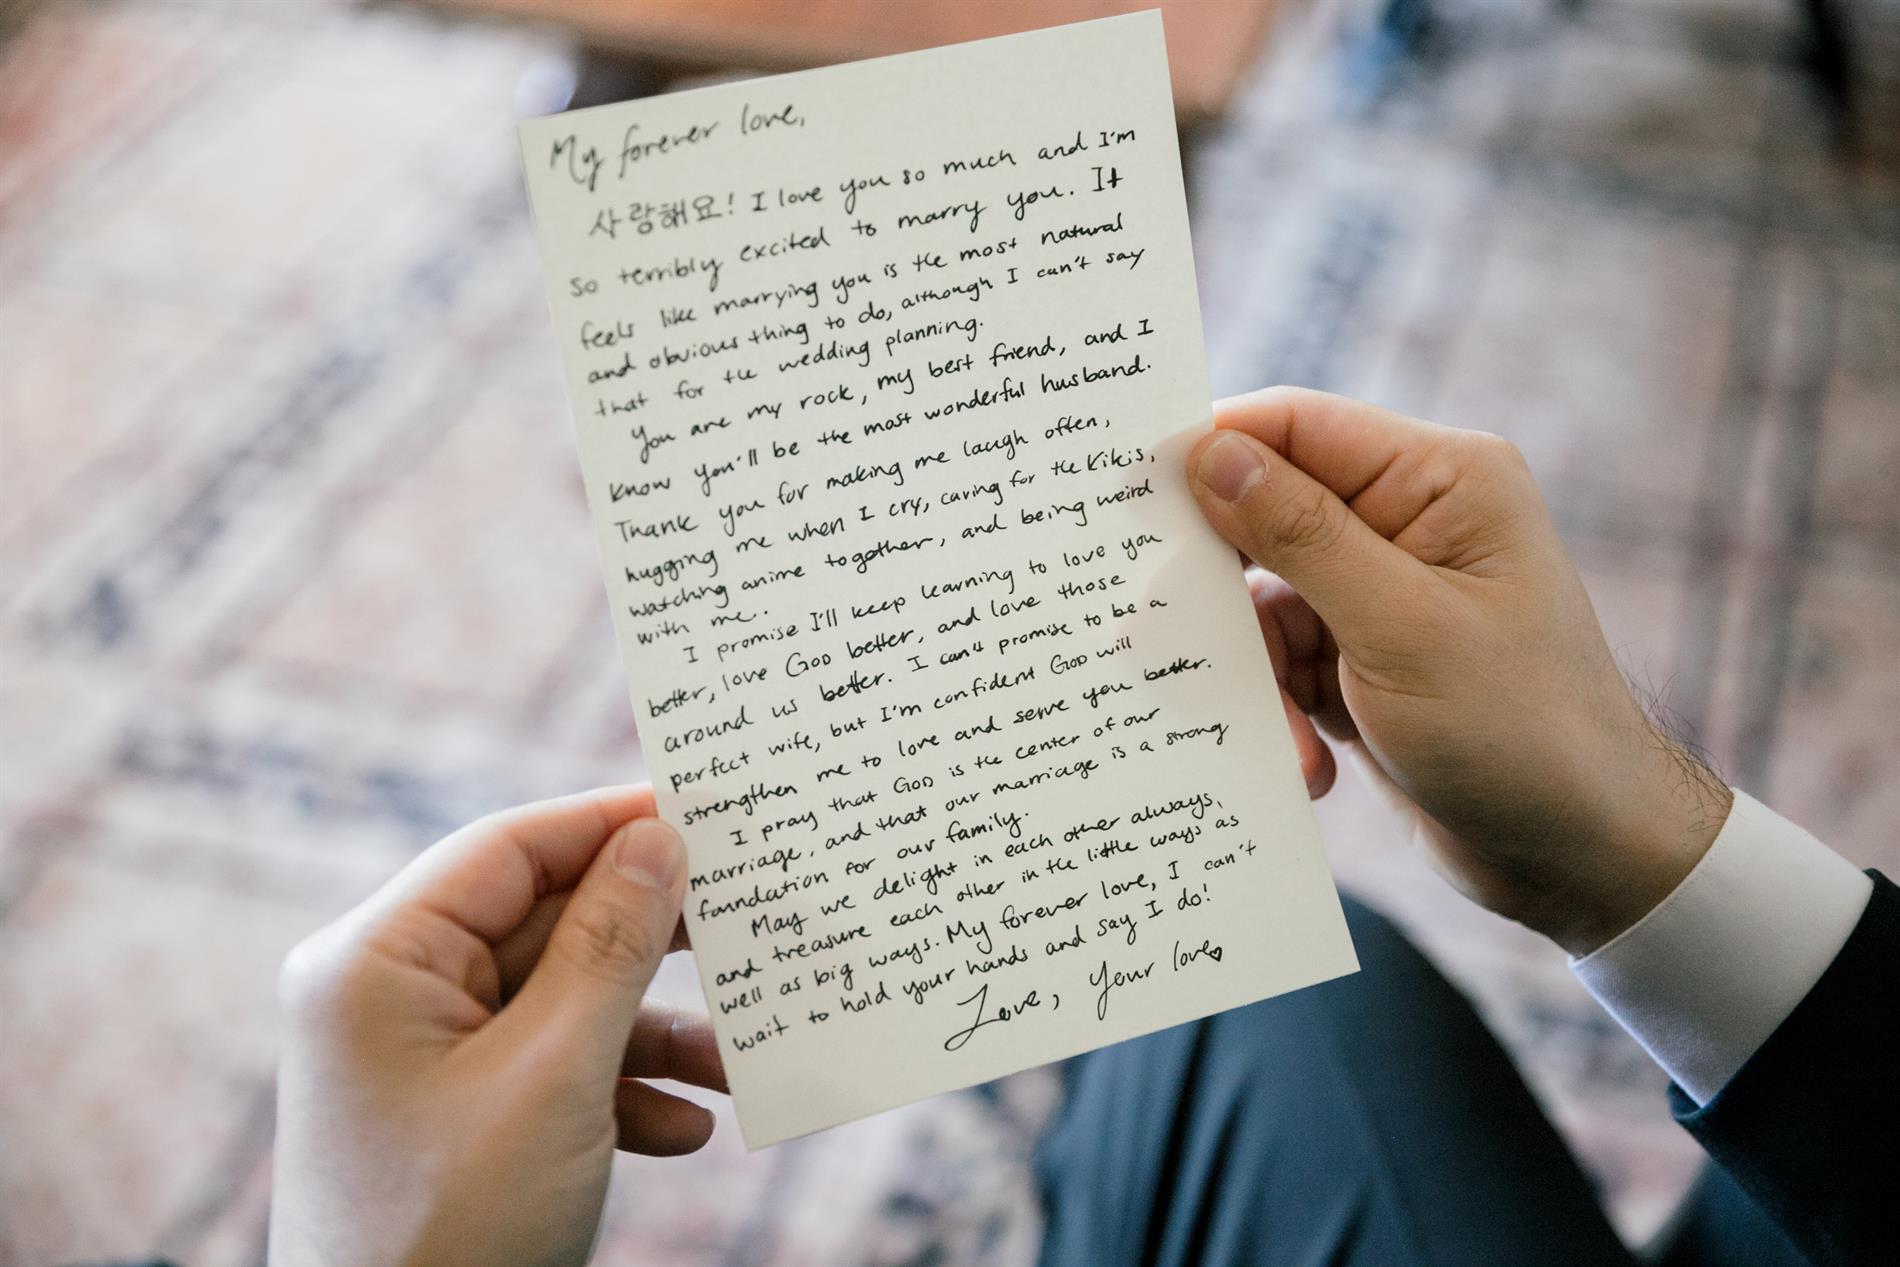 My forever love,
사랑해요! I love you so much and I'm
so terribly excited to marry you. It
feels like marrying you is the most natural
and obvious thing to do, although I can't say
that for the wedding planning.
You are my rock, my best friend, and I
know you'll be the most wonderful husband.
Thank you for making me laugh often,
hugging me when I cry, caring for the Kikis,
watching anime together, and being weird
with me..
I promise I'll keep learning to love you
better, love GOD better, and love those
around us better. I can't promise to be a
perfect wife, but I'm confident GOD will
strengthen me to love and serve you better.
I pray that GOD is the center of our
marriage, and that our marriage is a strong
foundation for our family.
May we delight in each other always,
and treasure each other in the little ways as
well as big ways. My forever love, I can't
wait to hold your hands and say I do!
Love, Your love♡